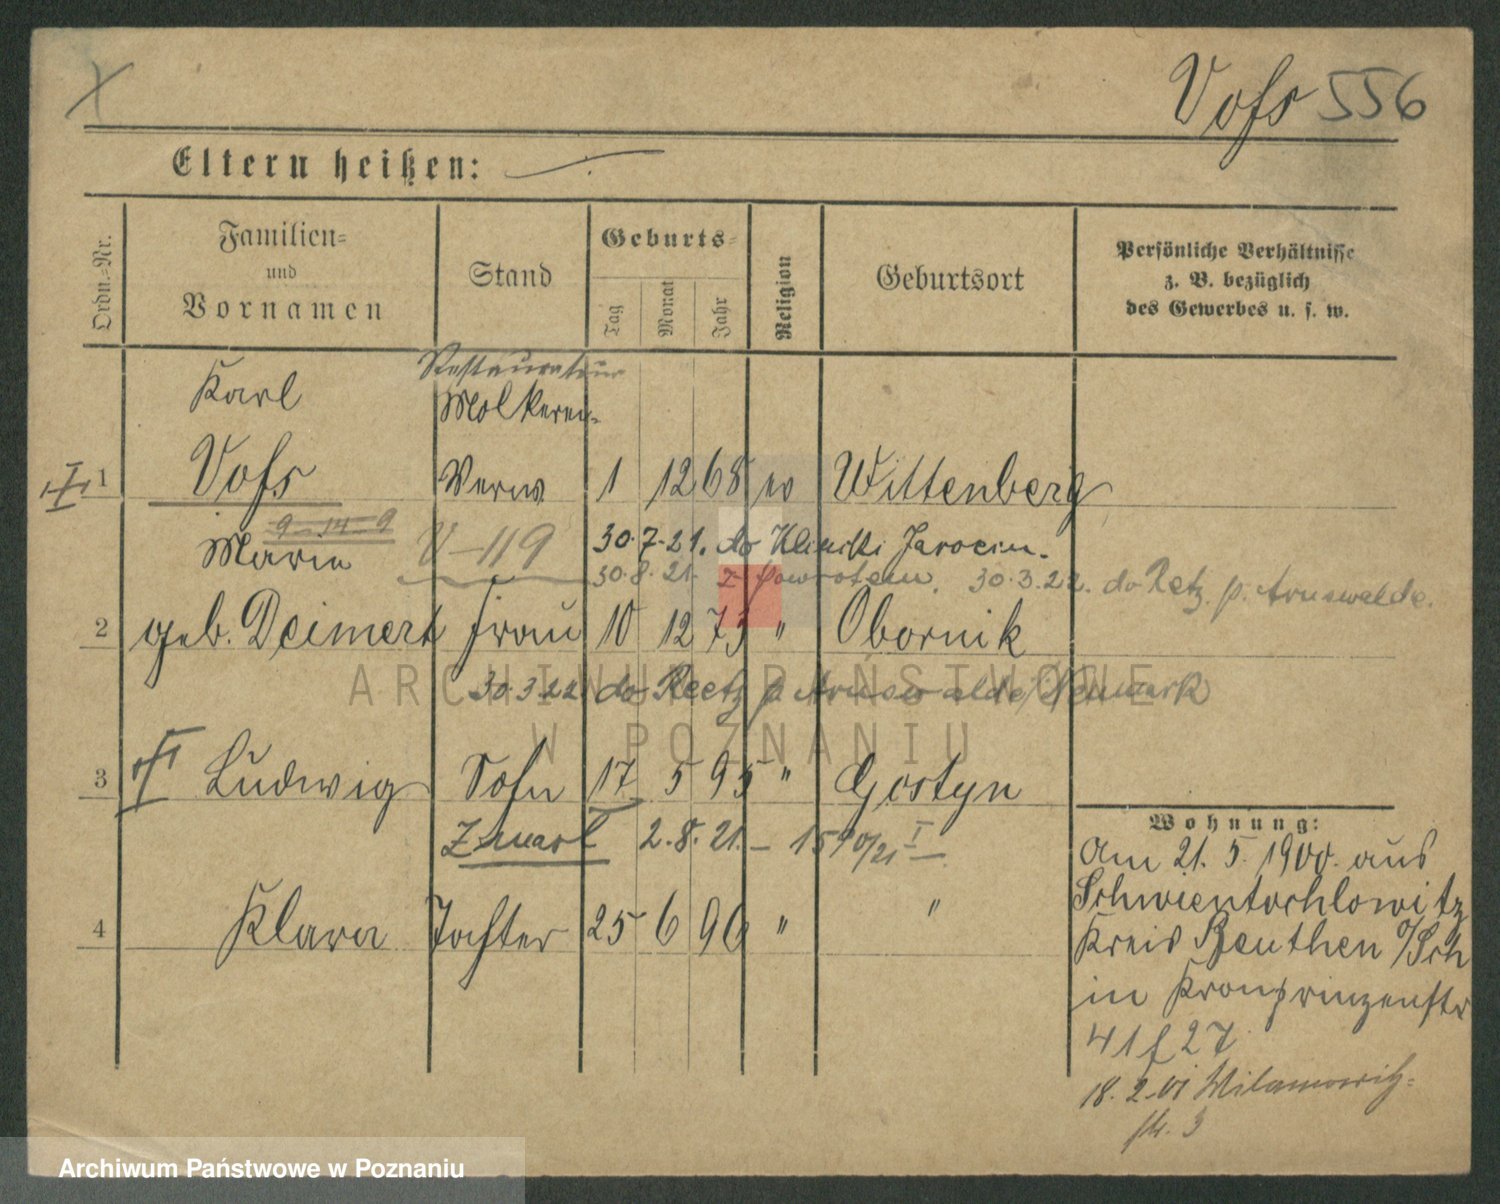 Voſs 556
Eltern heißen:
Ordn.-Nr.
Familien-
und
Vornamen
Stand
Geburts-
Tag
Monat
Jahr
Religion
Geburtsort
Persönliche Verhältnisse
z. B. bezüglich
des Gewerbes u. s. w.
Karl
Restaurateur
Molkerei-
I
1 Voſs Verw 1 12 68 ev Wittenberg
9-14-9
Marie V-119 30.7.21. do Kliniki Jarocin.
30.8.21. z powrotem. 30.3.22. do Retz. p. Arnswalde.
2 geb. Deimert Frau 10 12 73 " Obornik
30.3.22 do Reetz p Arnswalde/Neumark
3 Ludwig Sohn 17 5 95 " Gostyn
Zmarł 2.8.21. – 1590/21 I
4 Klara Tochter 25 6 96 " "
Wohnung:
Am 21. 5. 1900. aus
Schwientochlowitz
Kreis Beuthen O/Sch
in Kronprinzenstr
41 f 27
18. 2. 01 Wilamowitz-
str. 3
ARCHIWUM PAŃSTWOWE
W POZNANIU
Archiwum Państwowe w Poznaniu